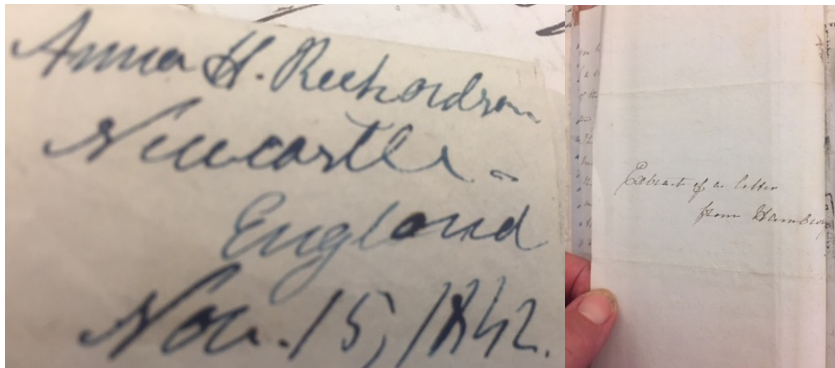 Anna H. Richardson
Newcastle -
England
Nov. 15, 1842.
Extract of a letter
from Hamburg